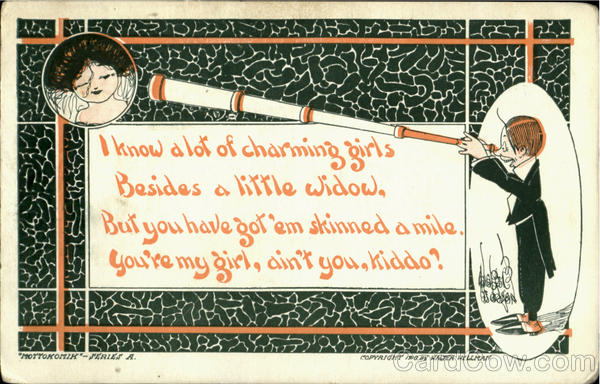 I know a lot of charming girls
Besides a little widow,
But you have got 'em skinned a mile.
You're my girl, ain't you, kiddo?
"MOTTOKOMIK" - SERIES A.
COPYRIGHT BY WALTER WELLMAN
CardCow.com